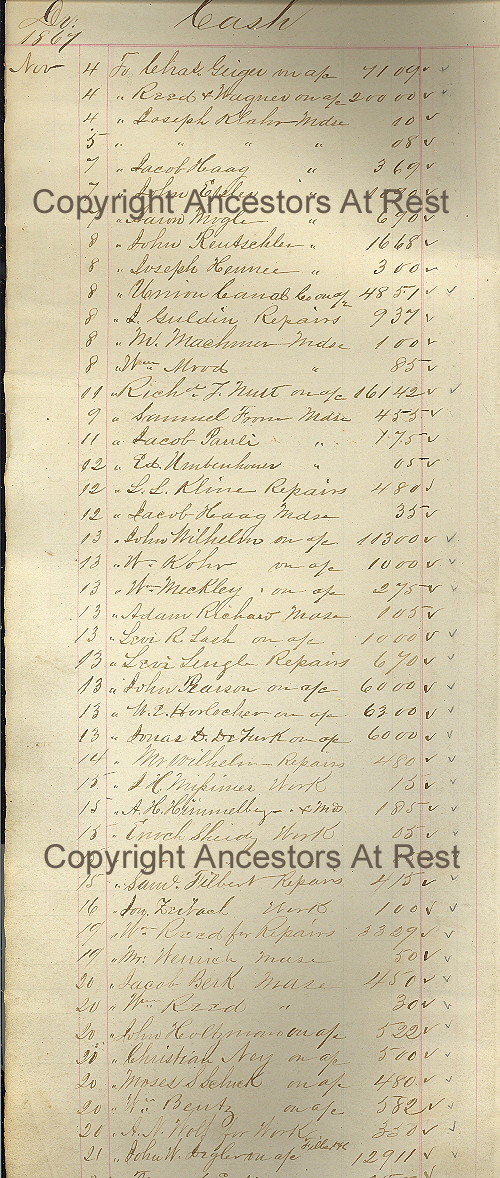 Dr. Cash
1867
Nov 4 To Chas. Geiger on a/c 71 09 ✓ ✓
4 " Reed & Wagner on a/c 200 00 ✓ ✓
4 " Joseph Klahr Mdse 10 ✓
5 " " " " 08 ✓
7 " Jacob Haag " 3 69 ✓
7 " John
Copyright Ancestors At Rest
7 " Aaron " 6 90 ✓
8 " John Rentschler " 16 68 ✓
8 " Joseph Hennee " 3 00 ✓
8 " Union Canal Co on a/c 48 51 ✓ ✓
8 " J. Guldin Repairs 9 37 ✓
8 " M. Machmer Mdse 1 00 ✓
8 " Wm " 85 ✓
11 " Richd. J. on a/c 161 42 ✓ ✓
9 " Samuel Mdse 4 55 ✓
11 " Jacob Pauli " 1 75 ✓
12 " Ed. Umbenhouer " 05 ✓
12 " L. L. Kline Repairs 4 80 ✓
12 " Jacob Haag Mdse 35 ✓
13 " John Wilhelm on a/c 113 00 ✓ ✓
13 " Wm Kohr on a/c 10 00 ✓ ✓
13 " Wm Meckley on a/c 2 75 ✓ ✓
13 " Adam Richard Mdse 1 05 ✓ ✓
13 " Levi R. Lash on a/c 10 00 ✓ ✓
13 " Levi Repairs 6 70 ✓ ✓
13 " John Pearson on a/c 60 00 ✓ ✓
13 " W. E. Horlocher on a/c 63 00 ✓ ✓
13 " Jonas D. DeTurk on a/c 60 00 ✓ ✓
14 " Mr Wilhelm Repairs 4 80 ✓ ✓
15 " J. H. Misimer Work 15 ✓ ✓
15 " A. H. Himmelberg " & Md 1 85 ✓ ✓
15 " Enoch Work 05 ✓ ✓
Copyright Ancestors At Rest
15 " Saml. Filbert Repairs 4 15 ✓ ✓
16 " Jon. Zerbach Work 1 00 ✓ ✓
19 " Wm Reed for Repairs 33 29 ✓ ✓
19 " Mr. Wenrich Mdse 50 ✓ ✓
20 " Jacob Berk Mdse 4 50 ✓ ✓
20 " Wm Reed " 30 ✓ ✓
20 " John Holtzman on a/c 5 22 ✓ ✓
20 " Christian Ney on a/c 5 00 ✓ ✓
20 " Moses S. Schuck on a/c 4 80 ✓ ✓
20 " Wm Bentz on a/c 5 82 ✓ ✓
20 " A. N. Wolf for Work 3 50 ✓ ✓
21 " John W. on a/c 129 11 ✓ ✓